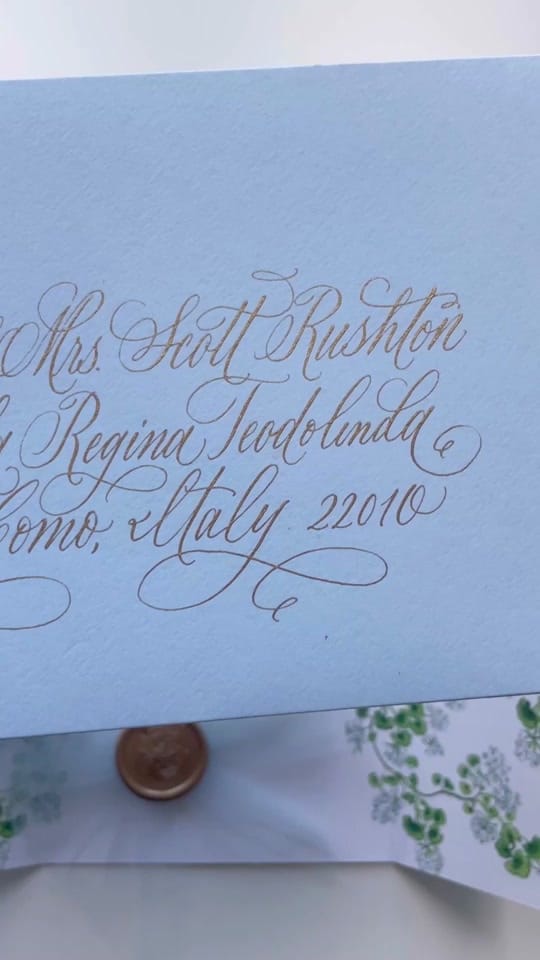 Mrs. Scott Rushton
Regina Teodolinda
Como, Italy 22010